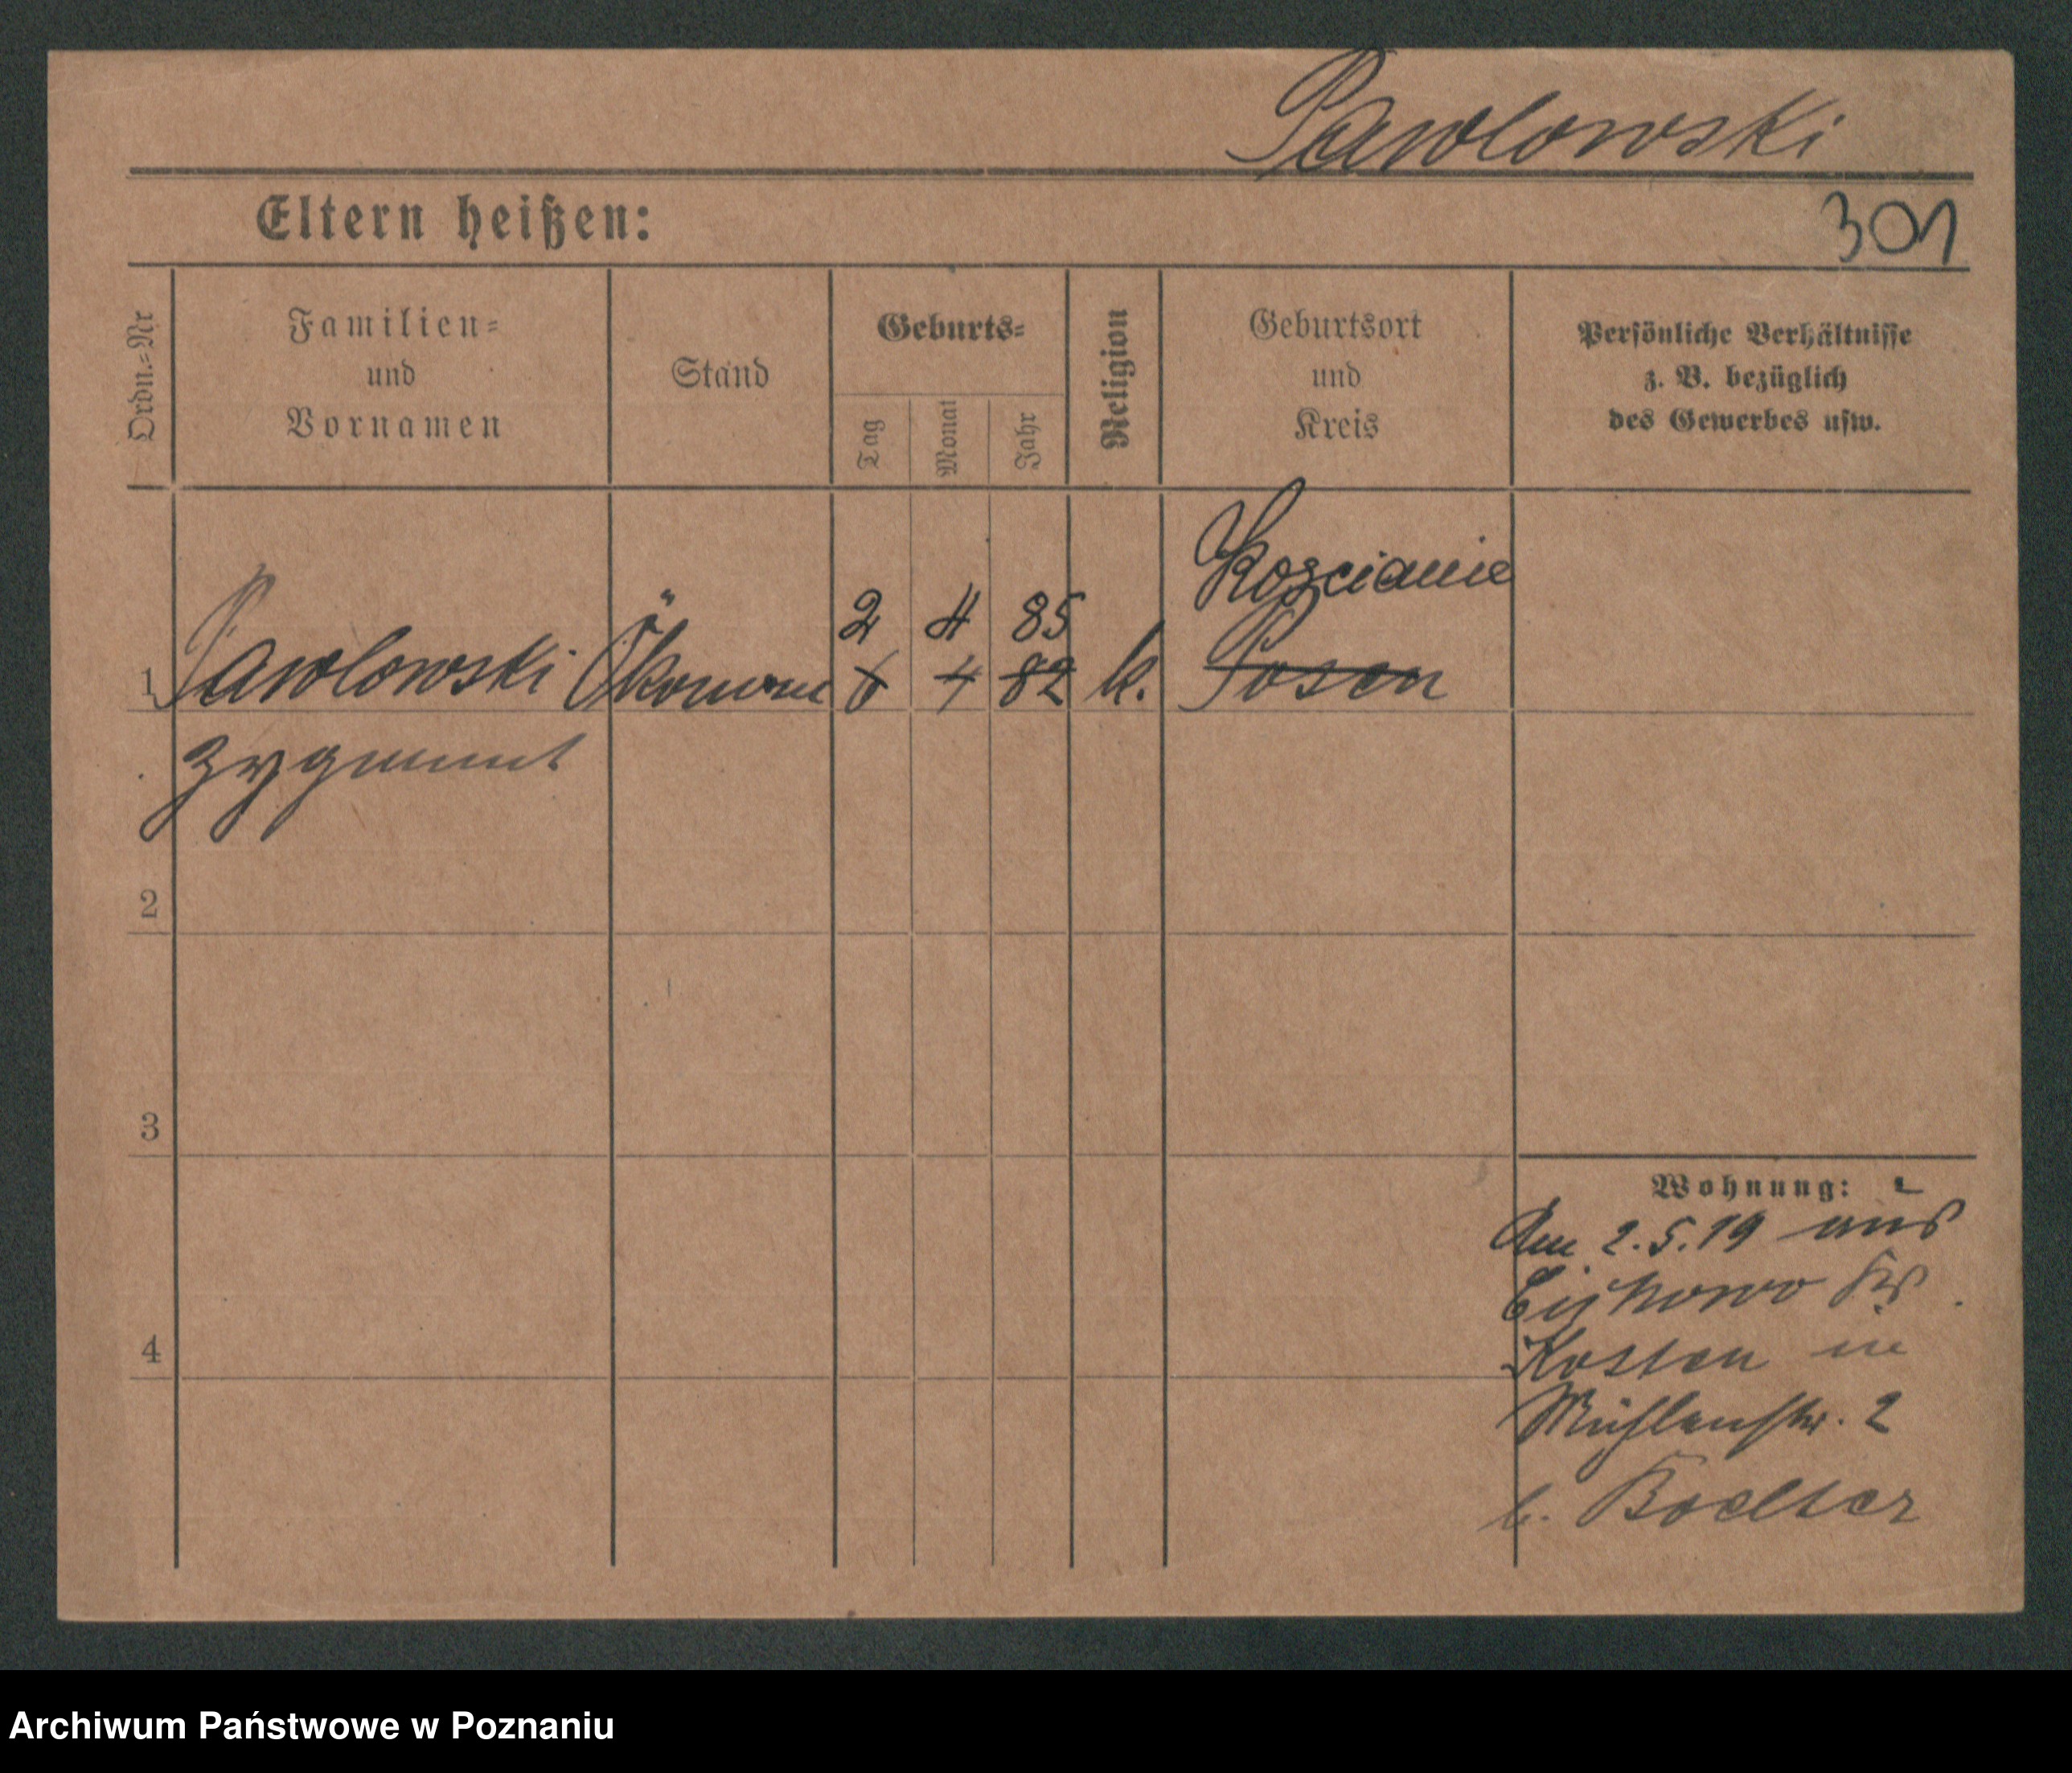 Pawlowski
Eltern heißen:
301
Ordn.=Nr
Familien=
und
Vornamen
Stand
Geburts=
Tag
Monat
Jahr
Religion
Geburtsort
und
Kreis
Persönliche Verhältnisse
z. B. bezüglich
des Gewerbes usw.
Koscianie
2 4 85
1 Pawlowski Ökonom 6 4 82 k. Posen
Zygmunt
2
3
4
Wohnung:
Am 2.5.19 aus
Krs
Kosten in
Mühlenstr. 2
b.
Archiwum Państwowe w Poznaniu